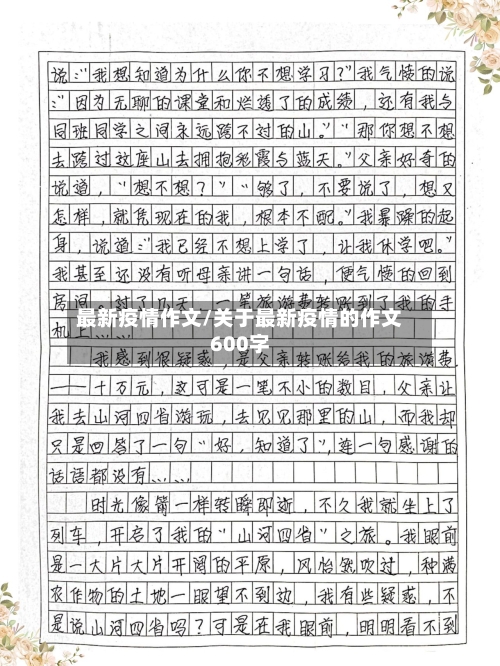 说:"我想知道为什么你不想学习?"我气愤的说
:"因为无聊的课堂和烂透了的成绩,还有我与
同班同学之间永远跨不过的山。""那你想不想
去跨过这座山去拥抱彩霞与蓝天。"父亲好奇的
说道,"想不想?""够了,不要说了,想又
怎样,就凭现在的我,根本不配。"我暴躁的起
身,说道:"我已经不想上学了,让我休学吧。"
我甚至还没有听母亲讲一句话,便气愤的回到
房间。过了几天,一笔旅游费转账到了我的手
机上……
最新疫情作文/关于最新疫情的作文
600字
我感到很疑惑,是父亲转账给我的旅游费
——十万元,这可是一笔不小的数目,父亲让
我去山河四省游玩,去见见那里的山,而我却
只是回答了一句"好,知道了",连一句感谢的
话语都没有……
时光像箭一样转瞬即逝,不久我就坐上了
列车,开启了我的"山河四省"之旅。我眼前
是一大片大片开阔的平原,风怡然吹过,种满
农作物的土地一眼望不到边,我有些疑惑,不
是说山河四省吗?可是在我眼前,明明看不到